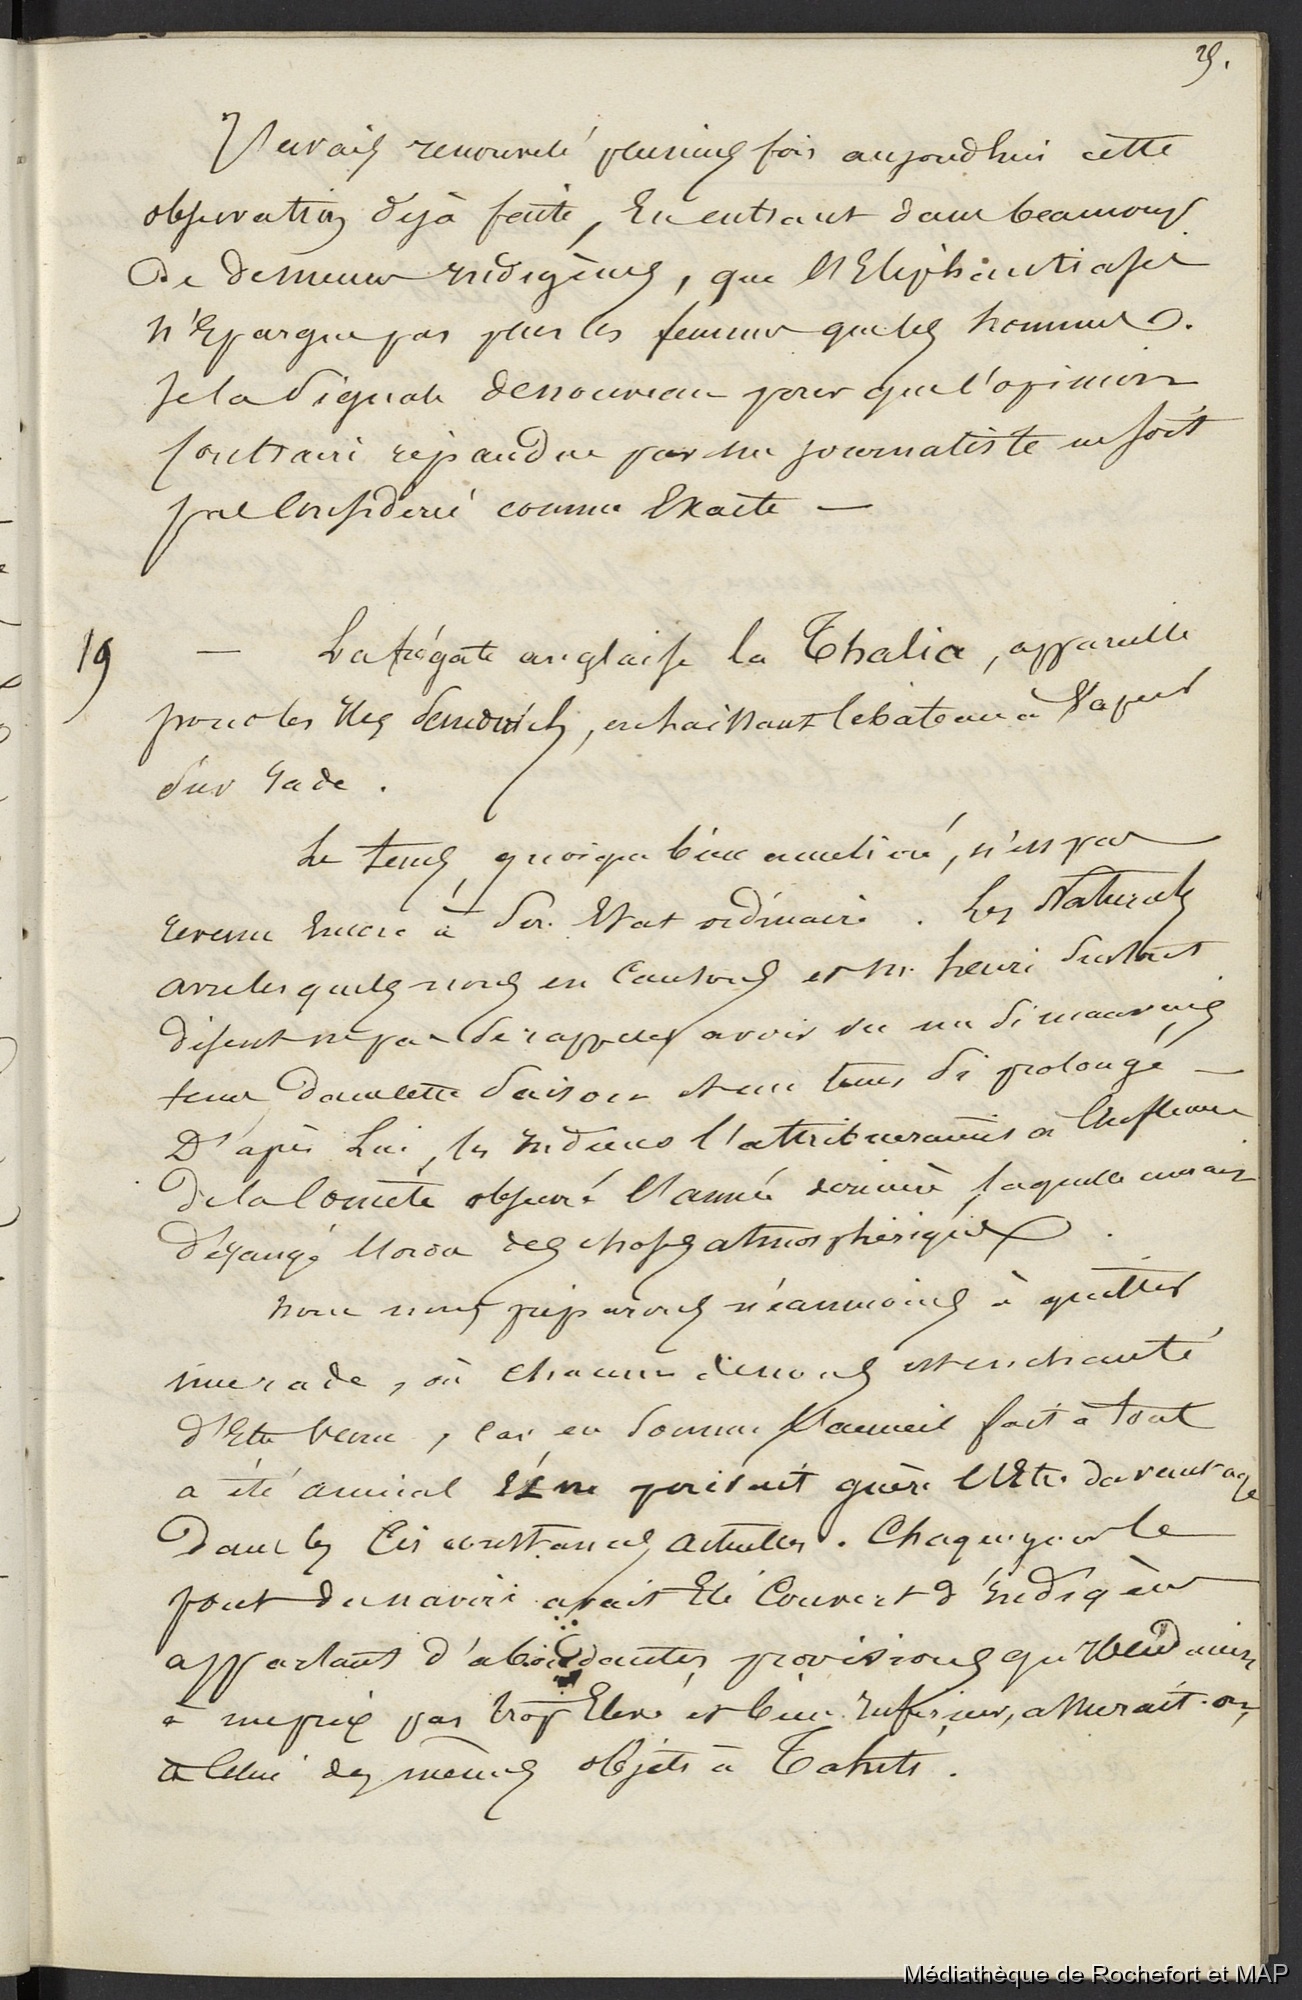 29.
J'avais renouvelé plusieurs fois aujourd'hui cette
observation déjà faite, En entrant dans beaucoup
De Demeures indigènes, que l'Elephantiasis
N'Epargne pas plus les femmes que les hommes.
Je la Signale denouveau pour que l'opinion
Contraire répandue par un journaliste ne soit
pas Considérée comme Exacte —
19 — La frégate anglaise la Thalia, appareille
pour les Iles Sandwich, en laissant le bateau à Vapeur
Sur rade.
Le tems, quoique bien amélioré, n'est pas
revenu Encore à Son Etat ordinaire. Les Naturels
avec lesquels nous en Causons et Mr henri Surtout
disent ne pas Se rappeler avoir vu un Si mauvais
tems Dans cette Saison et un tems Si prolongé —
D'après Lui, les indiens l'attribueraient à l'influence
De la Comète observée l'année dernière, laquelle aurait
dérangé l'ordre des choses atmosphériques.
Nous nous préparons néanmoins à quitter
une rade, où chacun de nous est enchanté
d'Etre Venu, Car en Somme l'accueil fait à tout
a été amical Et ne pouvait guère l'Etre davantage
Dans les Circonstances actuelles. Chaque jour le
pont du navire avait Eté Couvert d'indigènes
apportant d'abondantes provisions qu'
à un prix pas trop Elevé et bien inférieur, assurait-on,
à Celui des mêmes objets à Tahiti.
Médiathèque de Rochefort et MAP